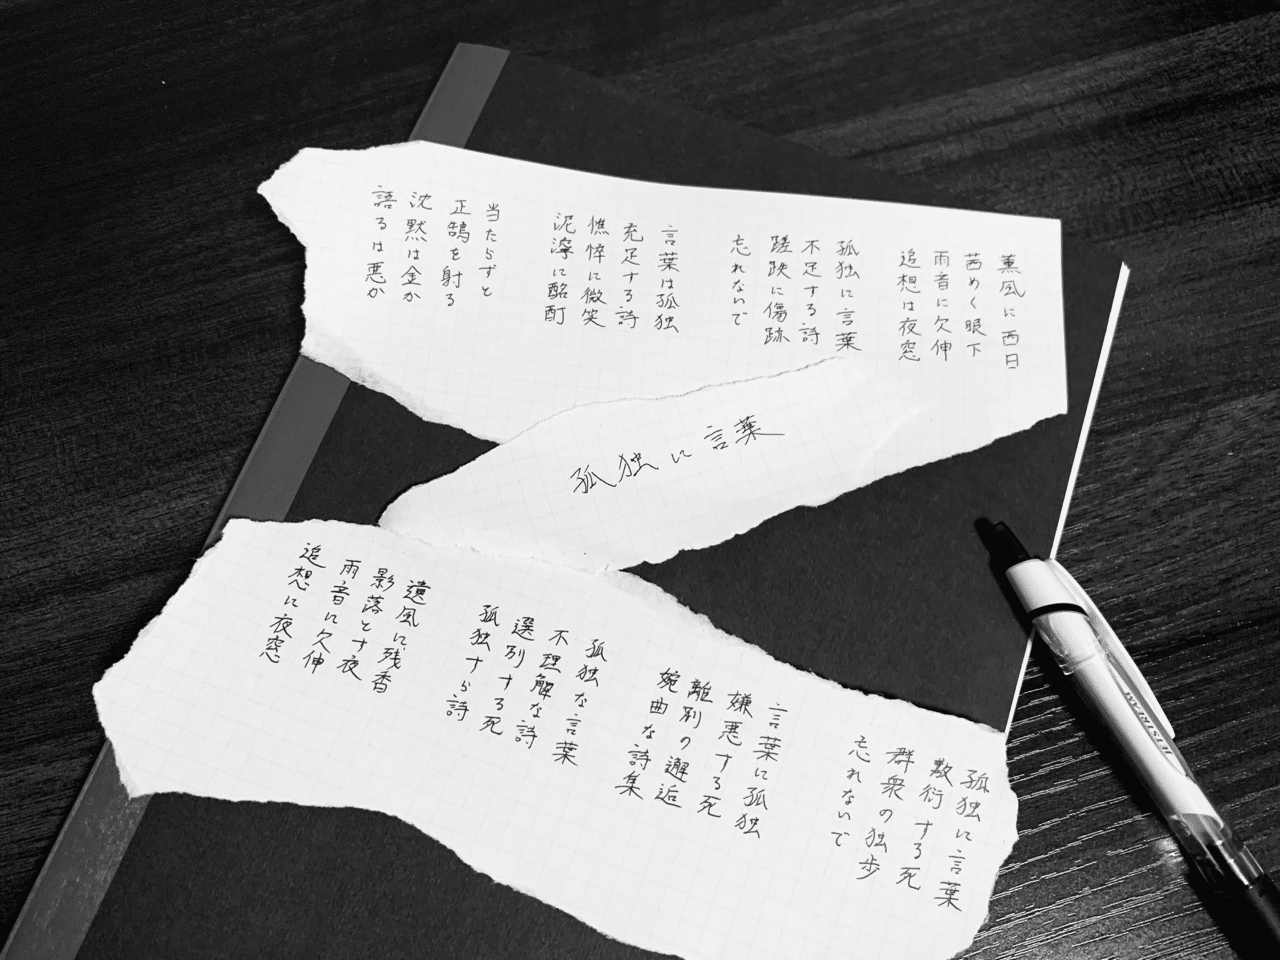 孤独に言葉
薫風に西日
茜めく眼下
雨音に欠伸
追想は夜窓
孤独に言葉
不足する詩
蹉跌に傷跡
忘れないで
言葉は孤独
充足する詩
憔悴に微笑
泥濘に酩酊
当たらずと
正鵠を射る
沈黙は金か
語るは悪か
孤独に言葉
敷衍する死
群衆の独歩
忘れないで
言葉に孤独
嫌悪する死
離別の邂逅
婉曲な詩集
孤独な言葉
不理解な詩
選別する死
孤独すら詩
遺風に残香
影落とす夜
雨音に欠伸
追想に夜窓
JETSTREAM